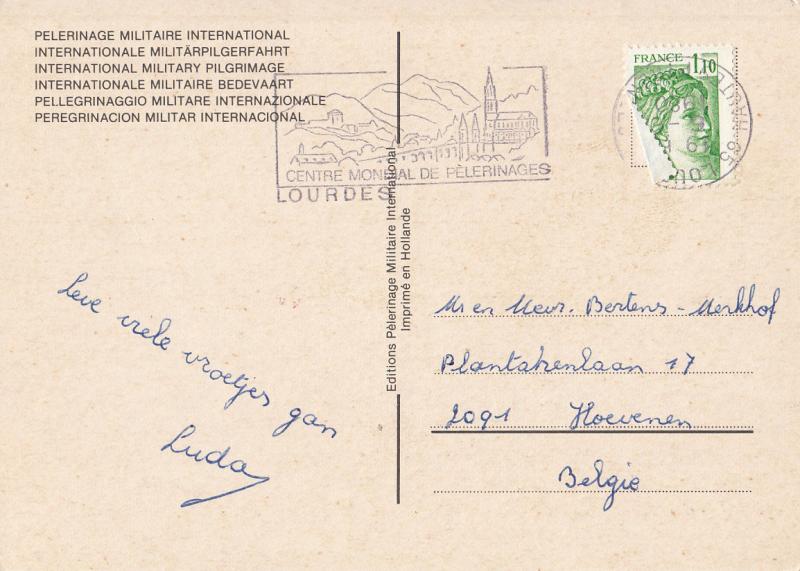 PELERINAGE MILITAIRE INTERNATIONAL
INTERNATIONALE MILITÄRPILGERFAHRT
INTERNATIONAL MILITARY PILGRIMAGE
INTERNATIONALE MILITAIRE BEDEVAART
PELLEGRINAGGIO MILITARE INTERNAZIONALE
PEREGRINACION MILITAR INTERNACIONAL
CENTRE MONDIAL DE PÈLERINAGES
LOURDES
FRANCE 1,10
Editions Pèlerinage Militaire International
Imprimé en Hollande
viele vroetjes gan
Luda
Mr en Mevr. Bertens - Merkhof
Plantakenlaan 17
2091 Hoevenen
Belgie